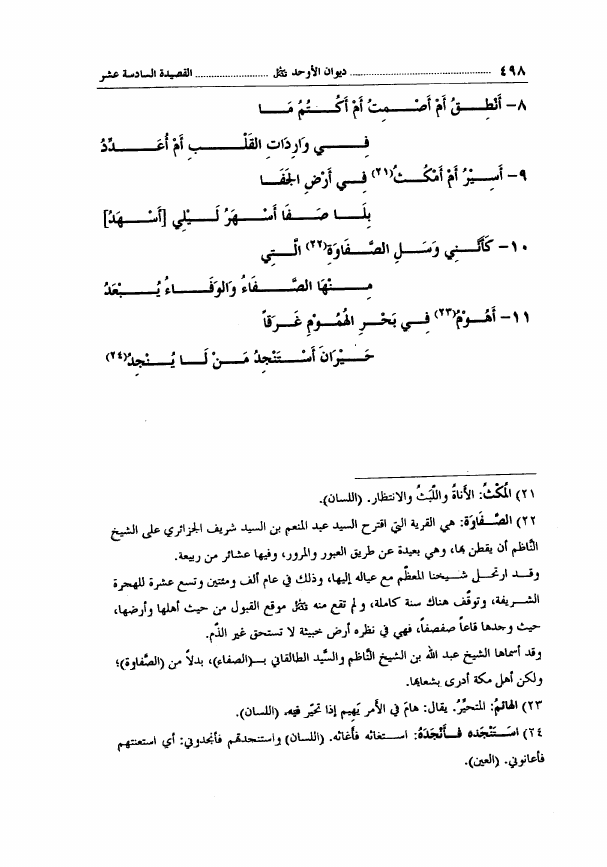 ٤٩٨ ........ ديوان الأوحد ........ القصيدة السادسة عشر
٨- أَنْطِقُ أَمْ أَصْمِتُ أَمْ أَكْتُمُ مَا
فِي وَارِدَاتِ القَلْبِ أَمْ أُعَدِّدُ
٩- أَسِيْرُ أَمْ أَمْكُثُ(٢١) فِي أَرْضِ الجَفَا
بِلَا صَفَا أَسْهَرُ لَيْلِي [أَسْهَدُ]
١٠- كَأَنَّنِي وَسَلِ الصَّفَاوَةِ(٢٢) الَّتِي
مِنْهَا الصَّفَاءُ وَالوَفَاءُ يُبْعَدُ
١١- أَهُوْمُ(٢٣) فِي بَحْرِ الهُمُوْمِ غَرَقاً
حَيْرَانَ أَسْتَنْجِدُ مَنْ لَا يُنْجِدُ(٢٤)
٢١) الْمُكْثُ: الأَناةُ واللَّبَثُ والانتظار. (اللسان).
٢٢) الصَّفَاوَة: هي القرية التي اقترح السيد عبد المنعم بن السيد شريف الجزائري على الشيخ
النَّاظم أن يقطن بها، وهي بعيدة عن طريق العبور والمرور، وفيها عشائر من ربيعة.
وقد ارتحل شيخنا المعظَّم مع عياله إليها، وذلك في عام ألف ومئتين وتسع عشرة للهجرة
الشريفة، وتوقَّف هناك سنة كاملة، ولم تقع منه موقع القبول من حيث أهلها وأرضها،
حيث وجدها قاعاً صفصفاً، فهي في نظره أرض خبيثة لا تستحق غير الذَّم.
وقد أسماها الشيخ عبد الله بن الشيخ النَّاظم والسيَّد الطالقاني بـ(الصفاء)، بدلاً من (الصَّفاوة)؛
ولكن أهل مكة أدرى بشعابها.
٢٣) الهائمُ: المتحيِّرُ. يقال: هامَ في الأمر يَهِيم إذا تحيَّر فيه. (اللسان).
٢٤) اسْتَنْجَده فَأَنْجَدَهُ: استغاثه فأغاثه. (اللسان) واستنجدتهم فأنجدوني: أي استعنتهم
فأعانوني. (العين).